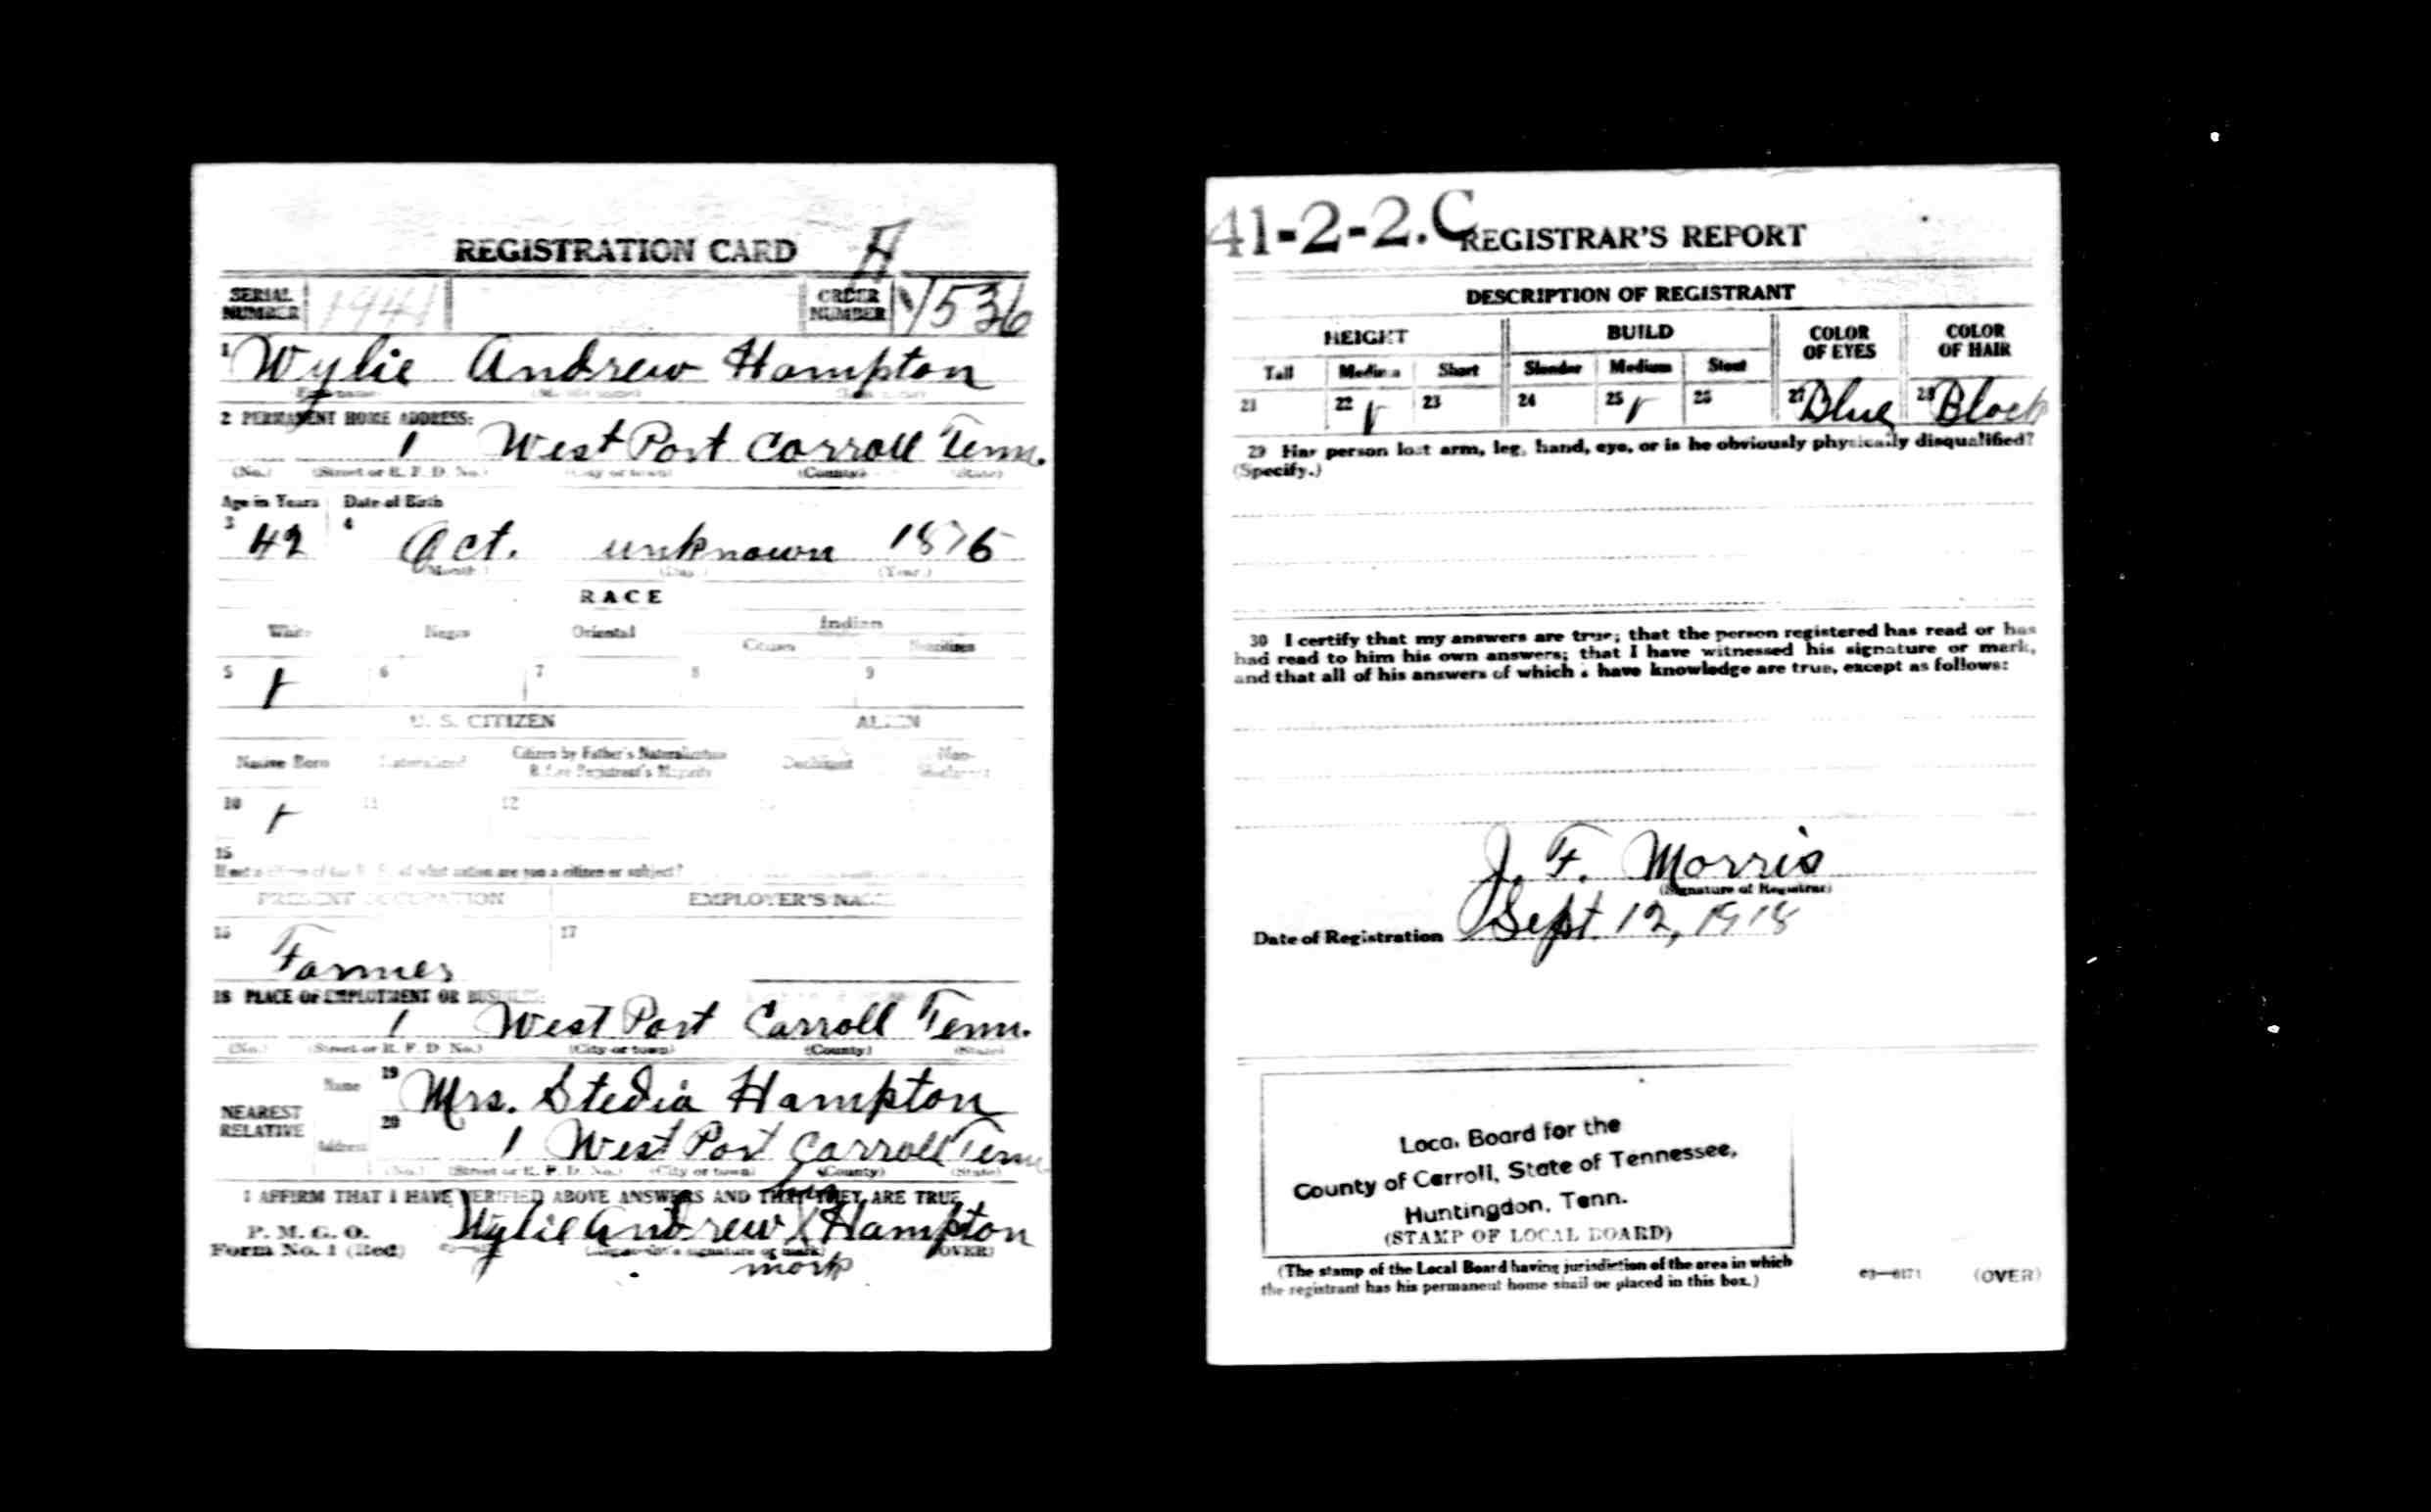 REGISTRATION CARD H
SERIAL NUMBER 1941 ORDER NUMBER 1536
1 Wylie Andrew Hampton
2 PERMANENT HOME ADDRESS:
1 West Port Carroll Tenn.
(No.) (Street or R. F. D. No.) (City or town) (County) (State)
Age in Years Date of Birth
3 42 4 Oct. unknown 1876
(Month) (Day) (Year)
RACE
White Negro Oriental Indian
Citizen Noncitizen
5 6 7 8 9
U. S. CITIZEN ALIEN
Native Born Naturalized Citizen by Father's Naturalization Before Registrant's Majority Declarant Non-
10 11 12
15
If not a citizen of the U. S., of what nation are you a citizen or subject?
PRESENT OCCUPATION EMPLOYER'S NAME
16 Farmer 17
18 PLACE OF EMPLOYMENT OR BUSINESS:
1 West Port Carroll Tenn.
(No.) (Street or R. F. D. No.) (City or town) (County) (State)
NEAREST RELATIVE Name 19 Mrs. Stedia Hampton
Address 20 1 West Port Carroll Tenn
(No.) (Street or R. F. D. No.) (City or town) (County) (State)
I AFFIRM THAT I HAVE VERIFIED ABOVE ANSWERS AND THAT THEY ARE TRUE
his
P. M. G. O.
Form No. 1 (Red) Wylie Andrew X Hampton
(Registrant's signature or mark) (OVER)
mark
41-2-2.C REGISTRAR'S REPORT
DESCRIPTION OF REGISTRANT
HEIGHT BUILD COLOR OF EYES COLOR OF HAIR
Tall Medium Short Slender Medium Stout
21 22 23 24 25 26 27 Blue 28 Black
29 Has person lost arm, leg, hand, eye, or is he obviously physically disqualified?
(Specify.)
30 I certify that my answers are true; that the person registered has read or has
had read to him his own answers; that I have witnessed his signature or mark,
and that all of his answers of which I have knowledge are true, except as follows:
J. F. Morris
(Signature of Registrar)
Date of Registration Sept. 12, 1918
Local Board for the
County of Carroll, State of Tennessee,
Huntingdon, Tenn.
(STAMP OF LOCAL BOARD)
(The stamp of the Local Board having jurisdiction of the area in which
the registrant has his permanent home shall be placed in this box.)
03—6171 (OVER)